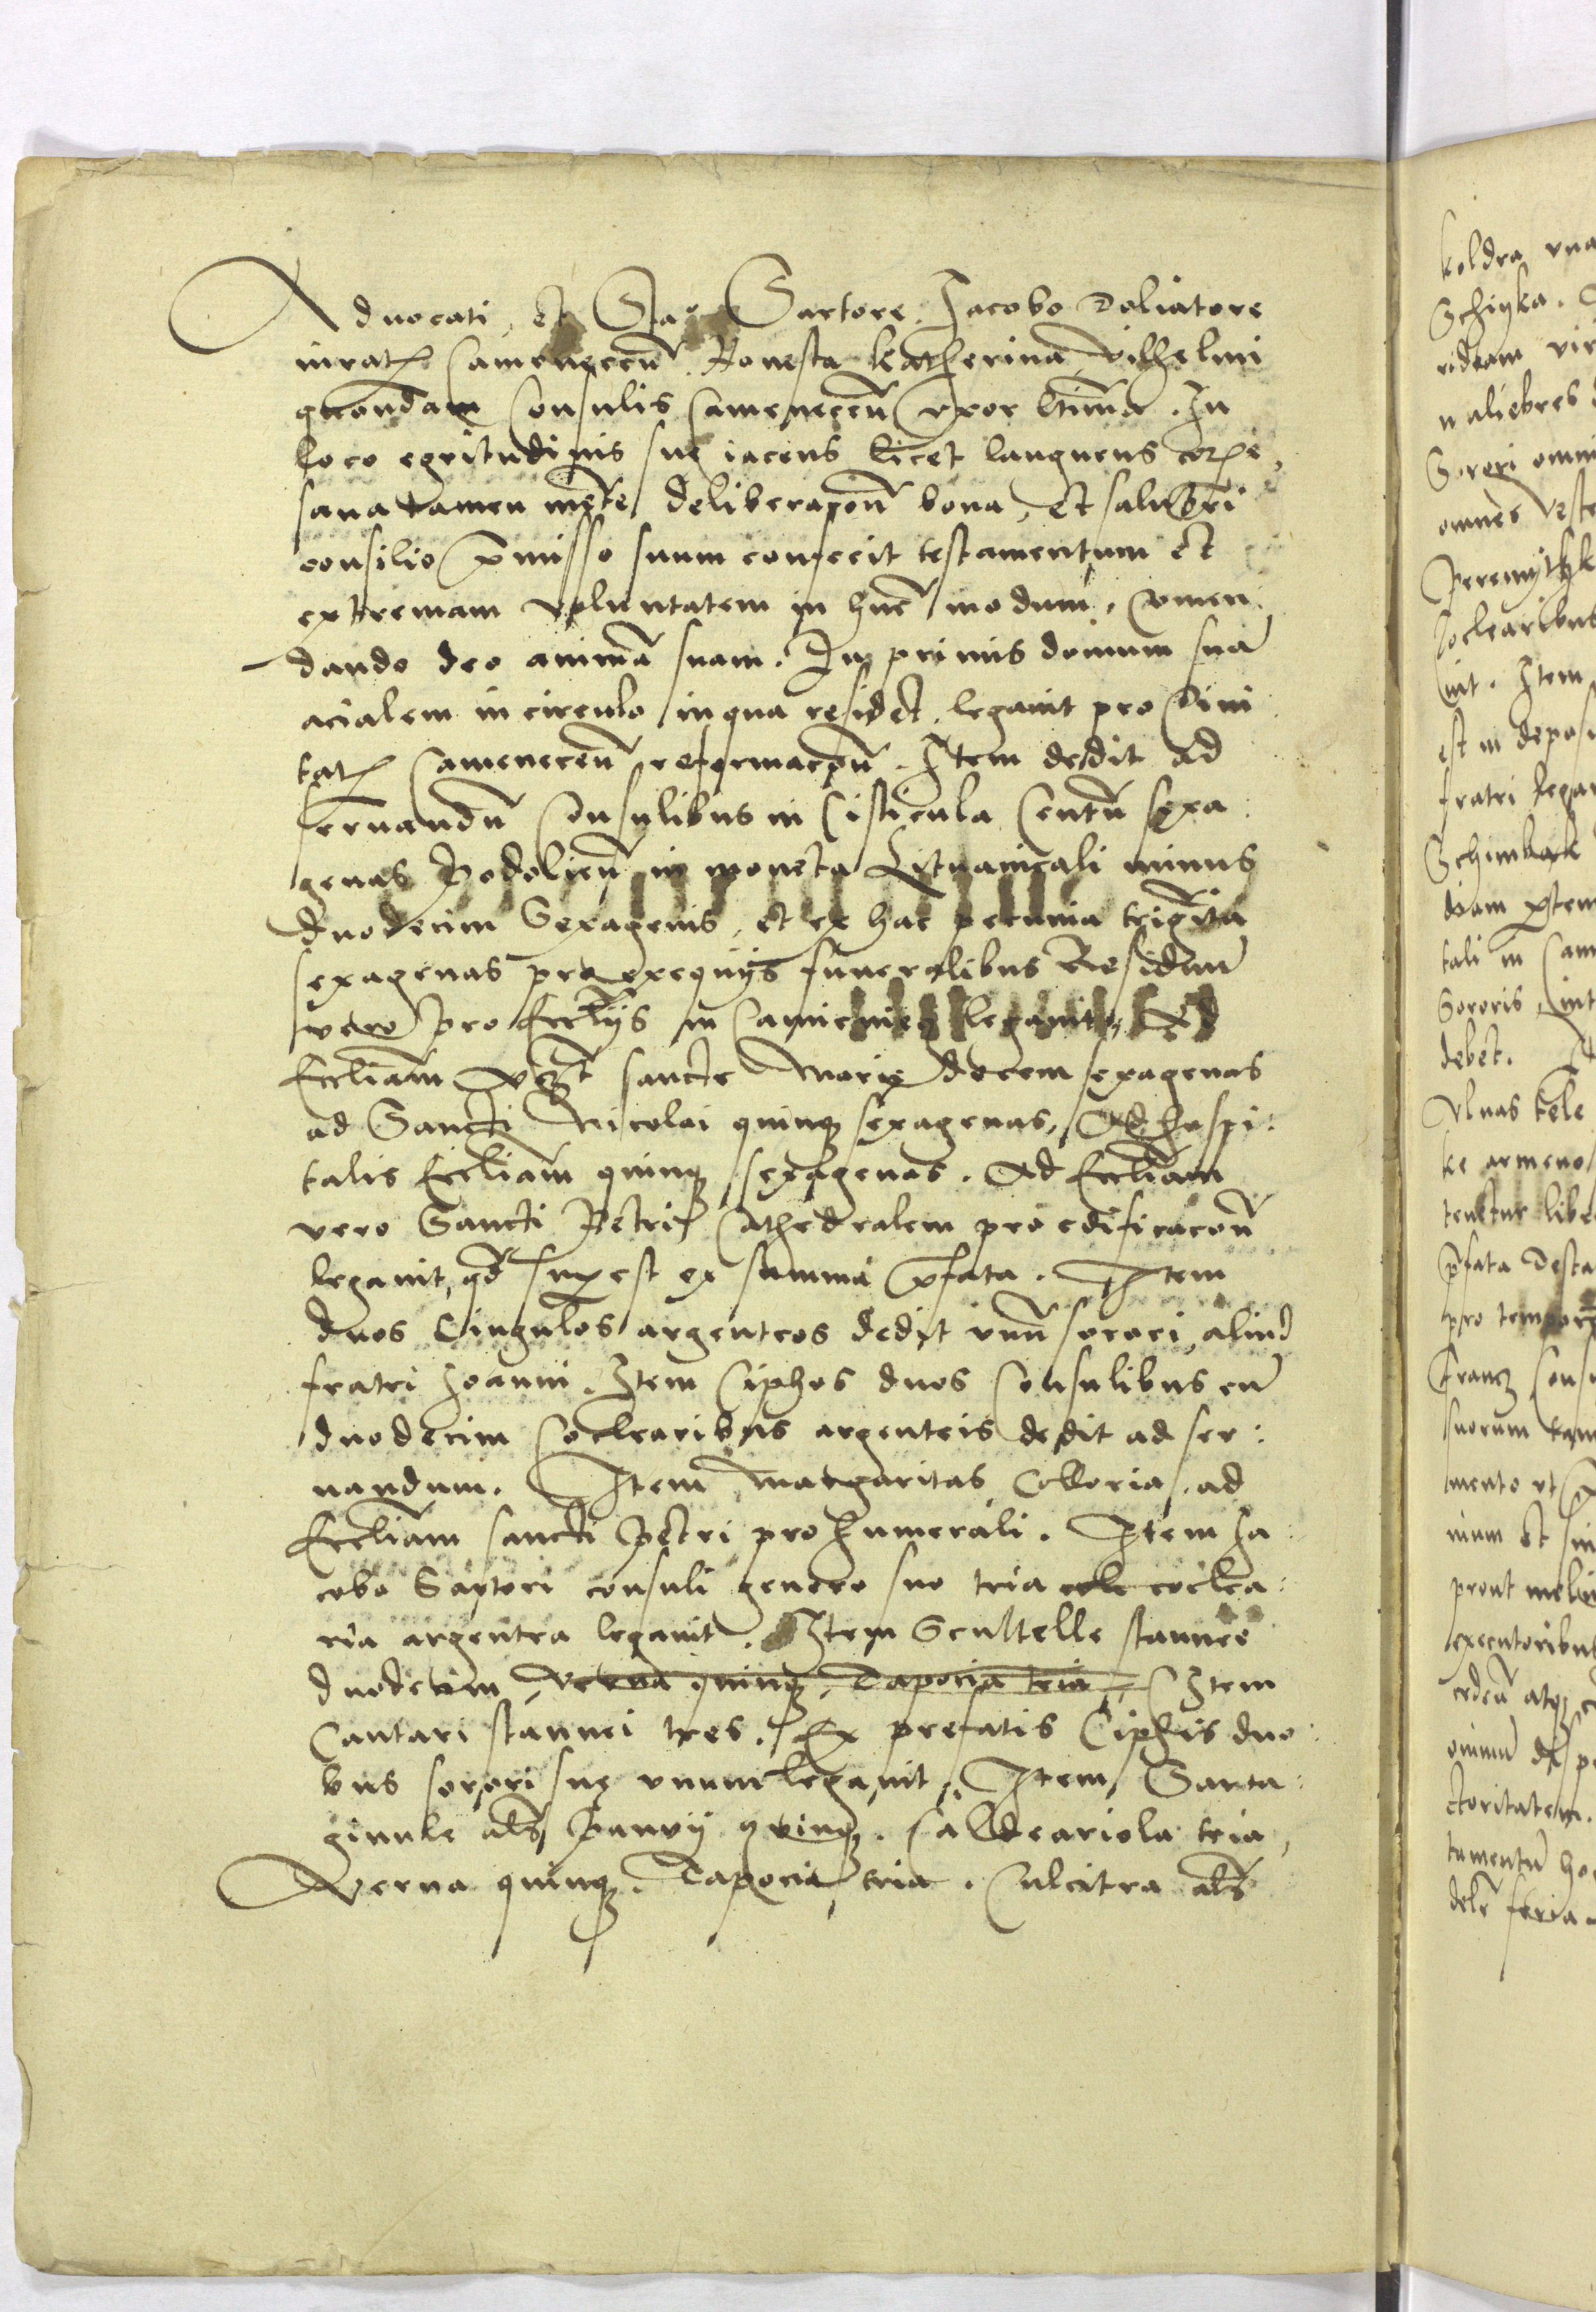 Aduocati, et Sta: Sartore. Jacobo Doliatore
iurat Camenecen̄. Honesta Katherina Vilhelmi
quondam Consulis Camenecen̄ vxor l̄tima. In
loco egritudinis sue iacens licet languens corpe,
sana tamen mēte deliberacōn̄ bona, et salubri
consilio p̄misso suum confecit testamentum et
extremam voluntatem in hn̄c modum. Comen
dando deo animā suam. In primis domum suā
acialem in circulo in qua residet. legauit pro Ciui
tat Camenecen̄ reformacōn̄. Item dedit ad
seruandū Consulibus in Cisticula Centū sexa:
genas Podolien̄ in moneta Lituanicali minus
duodecim Sexagenis, et ex hac pecunia trigīta
sexagenas pro exequijs funeralibus Residuū
vero pro Ecclijs in Camieniecz legauit, Ad
Eccliam vz̄t sancte Marie decem sexagenas
ad Sancti Nicolai quinq sexagenas, Ad hospi:
talis Eccliam quinq sexagenas. Ad Eccliam
vero Sancti Petri Cathedralem pro edificacōn̄
legauit, qd̄ supest ex summa p̄fata. Item
duos Cingulos argenteos dedit vnū sorori, aliud
fratri Joanni. Item Ciphos duos Consulibus cū
duodecim Coclearibus argenteis dedit ad ser:
uandum. Item margaritas Colloria. ad
Eccliam sancti Petri pro humerali. Item Ja:
cobo Sartori consuli genero suo tria cole coclea:
ria argentea legauit. Item Scultelle stannee
duodecim, Verna quinq, Tapocia tria, Item
Cantari stannei tres. Ex prefatis Ciphis duo:
bus sorori sue vnum legauit. Item Sarta:
ginule als̄ Panvij quinq. Caldeariola tria,
Verna quinq. Tapocia tria. Culcitra als̄
koldra vna
Schiyka.
rideam vir
n aliebres
Sorori omn
omnes veste
Peremythk
Coclearibus
uit. Item
est in depos
fratri legau
Schimbark
tali in Cam
Sororis, int
debet.
Vlnas tele
ke armeno
tenetur libe
p̄fata Testa
pro tempore
Francz Consu
suorum tam
mento vt
nium et sin
prout meliu
executoribus
edeā atq
omniū disp
ctoritatem.
tamentū hoc
dele feria